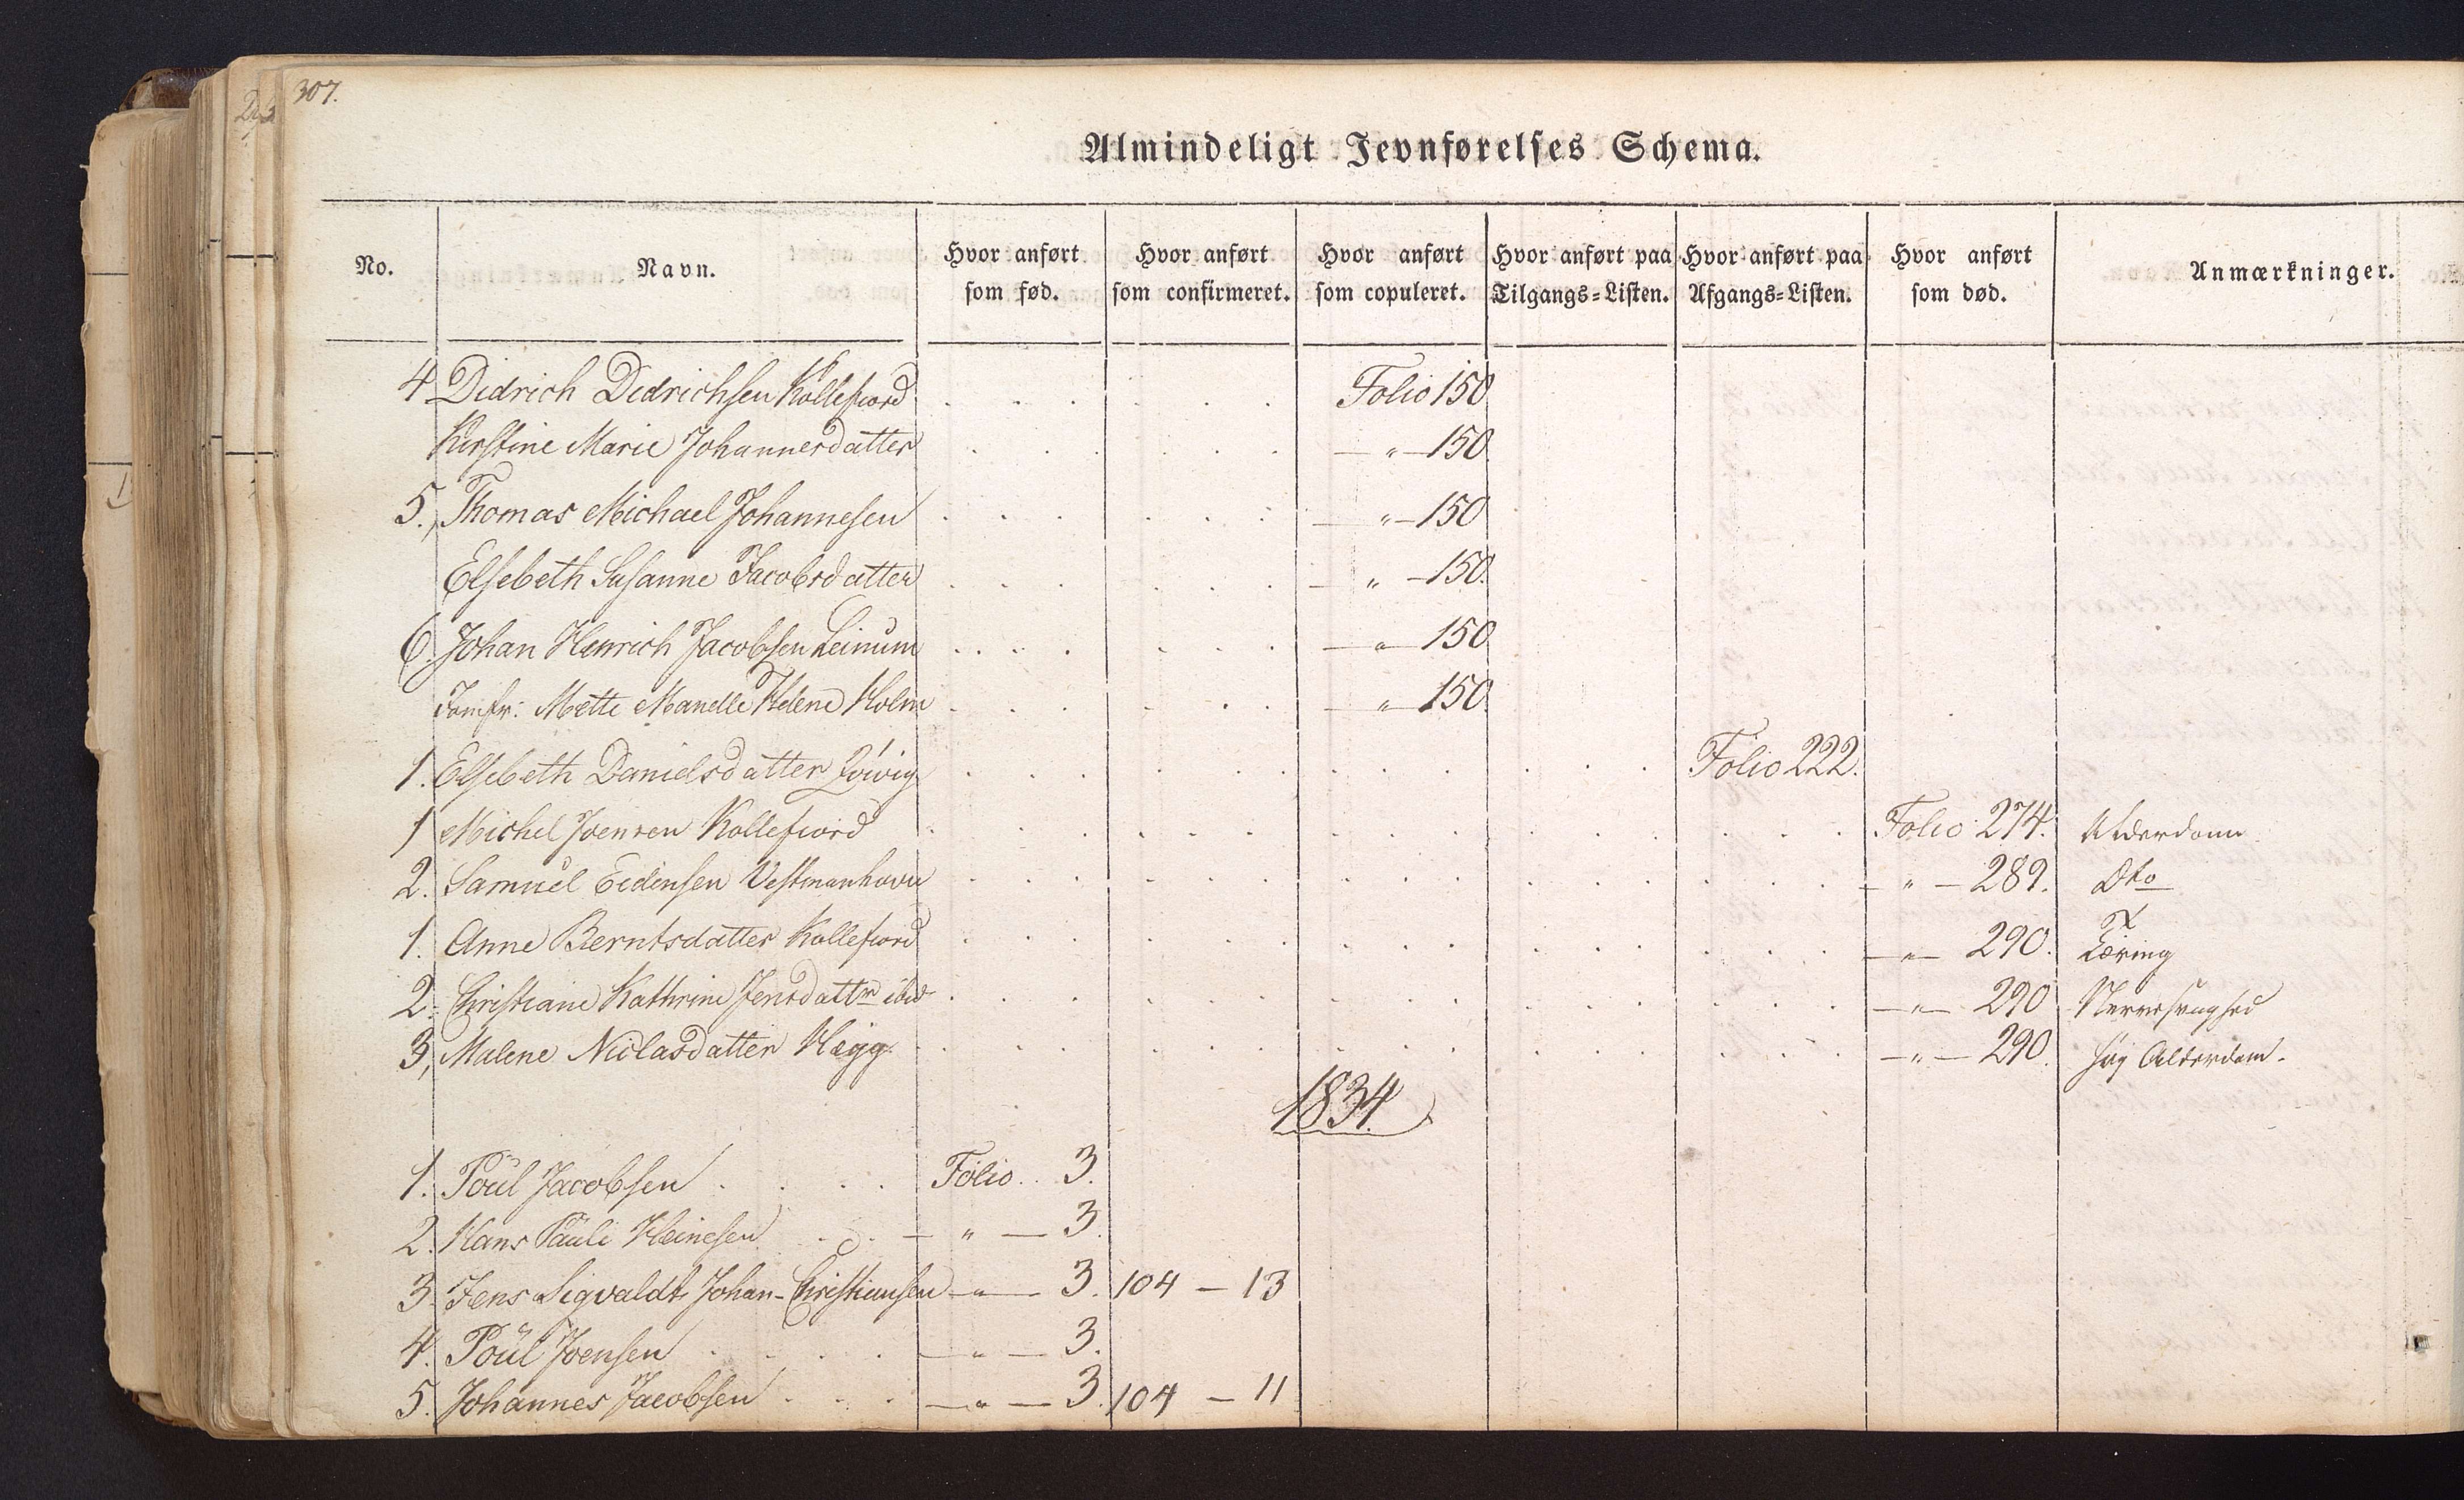 307.
Almindeligt Jevnførelses Schema.
No. Navn. Hvor anført som fød. Hvor anført som confirmeret. Hvor anført som copuleret. Hvor anført paa Tilgangs-Listen. Hvor anført paa Afgangs-Listen. Hvor anført som død. Anmærkninger.
4 Didrich Didrichsen Kollefiord Folio 150
Kirstine Marie Johannesdatter — " — 150
5. Thomas Michael Johannesen — " — 150
Elsebeth Susanne Jacobsdatter — " — 150.
6. Johan Henrich Jacobsen Leinum — " — 150
Jomfr: Mette Manelle Helene Holm — " — 150.
1. Elsebeth Danielsdatter Folio 222.
1 Michel Joensen Kollefiord Folio 274. Alderdom
2. Samuel Eidensen Vestmanhavn — " — 289. Dto
1. Anne Berntsdatter Kollefiord — " — 290. Tæring
2. Christiane Kathrine Jensdattr ibid — " — 290 Nervesvaghed
3, Malene Niclasdatter Hægg — " — 290. høy Alderdom.
1834.
1. Poul Jacobsen Folio 3.
2. Hans Pauli Heinesen — " — 3.
3. Jens Sigvaldt Johan-Christiansen — " — 3. 104 — 13
4. Poul Joensen — " — 3.
5. Johannes Jacobsen — " — 3. 104 — 11